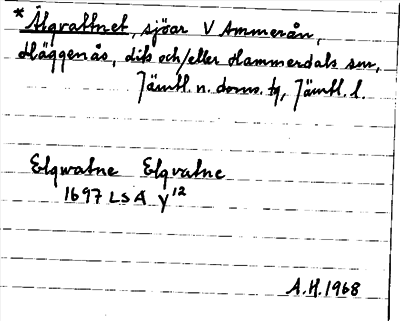 * Älgvattnet, sjöar V Ammerån,
Häggenås, dits och/eller Hammerdals sn,
Jämtl. n. doms. tg, Jämtl. l.
Elgwatne Elgvatne
1697 LSA Y12
A.H. 1968